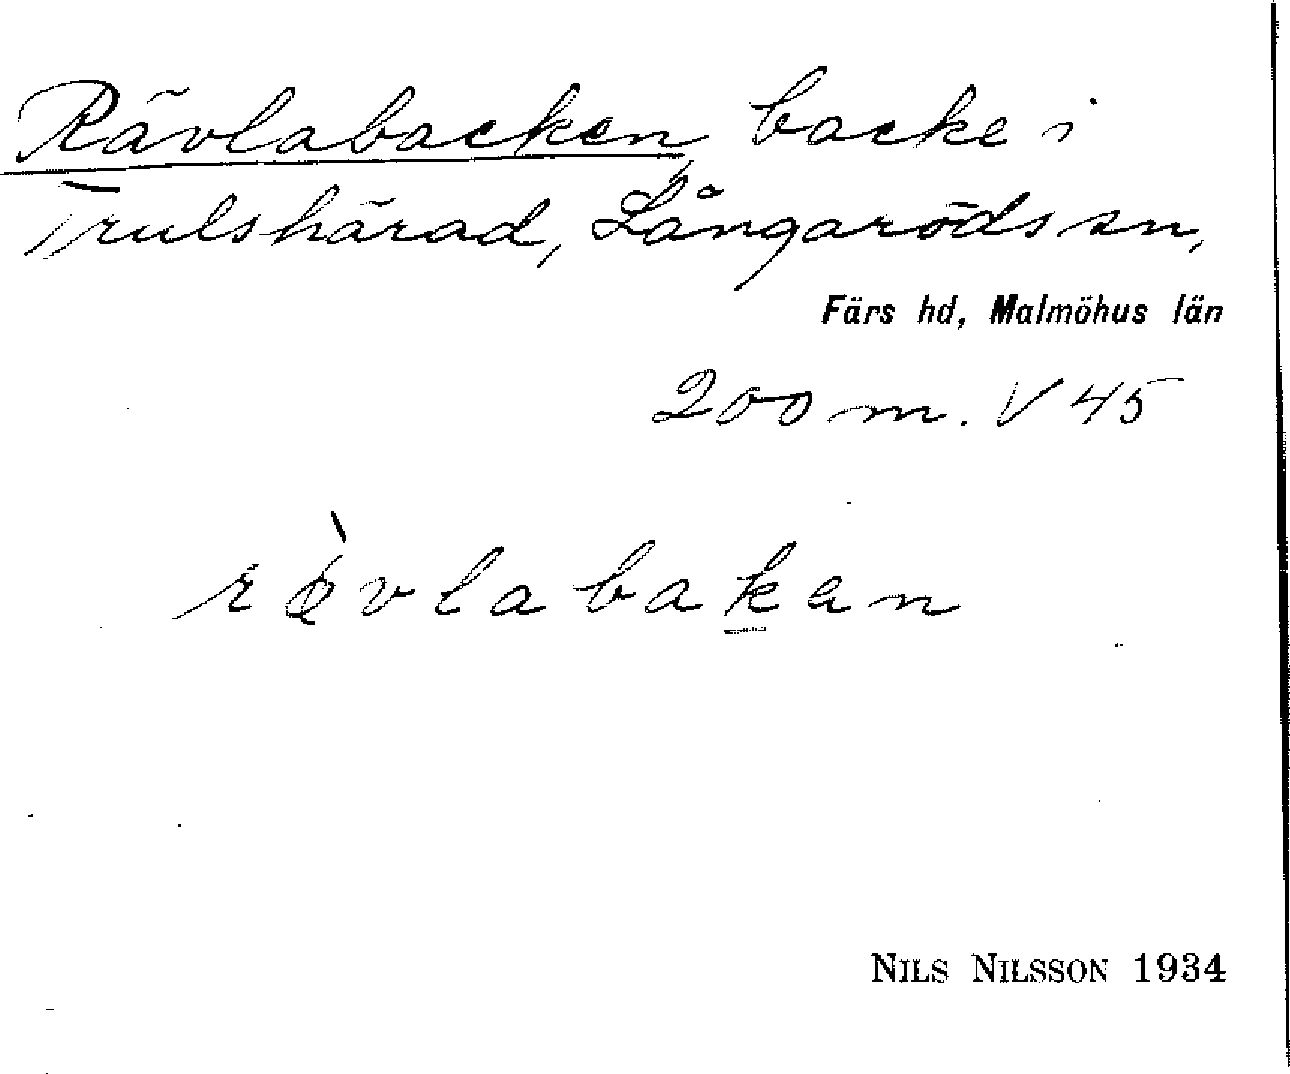 Rävlabacken, backe i
Trulshärad, Långaröds sn,
Färs hd, Malmöhus län
200 m. V 45
rø̀vlabakan
NILS NILSSON 1934